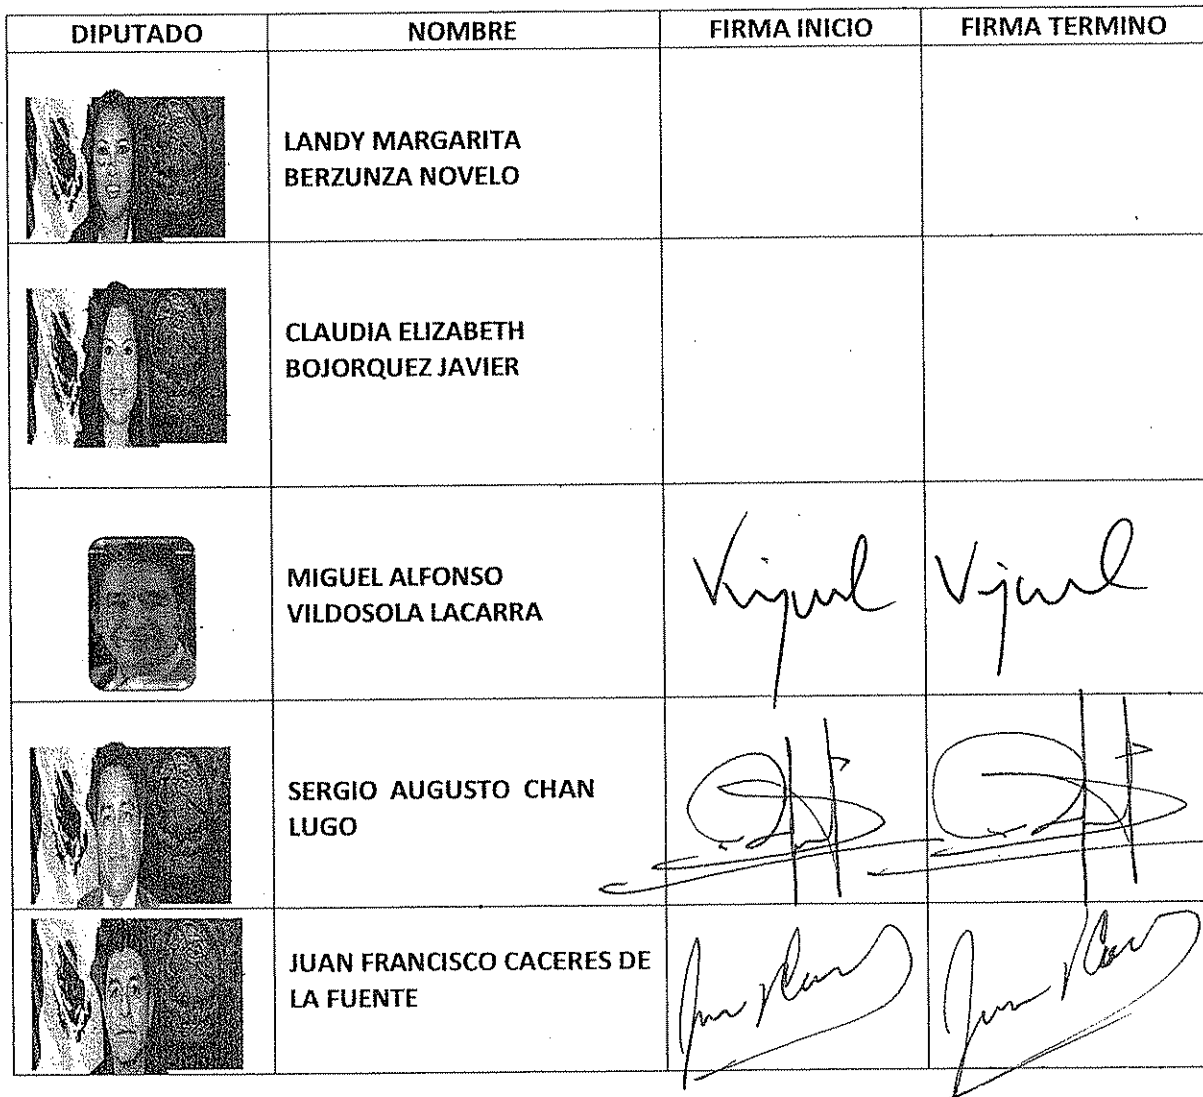 DIPUTADO NOMBRE FIRMA INICIO FIRMA TERMINO
LANDY MARGARITA
BERZUNZA NOVELO
CLAUDIA ELIZABETH
BOJORQUEZ JAVIER
MIGUEL ALFONSO
VILDOSOLA LACARRA
SERGIO AUGUSTO CHAN
LUGO
JUAN FRANCISCO CACERES DE
LA FUENTE